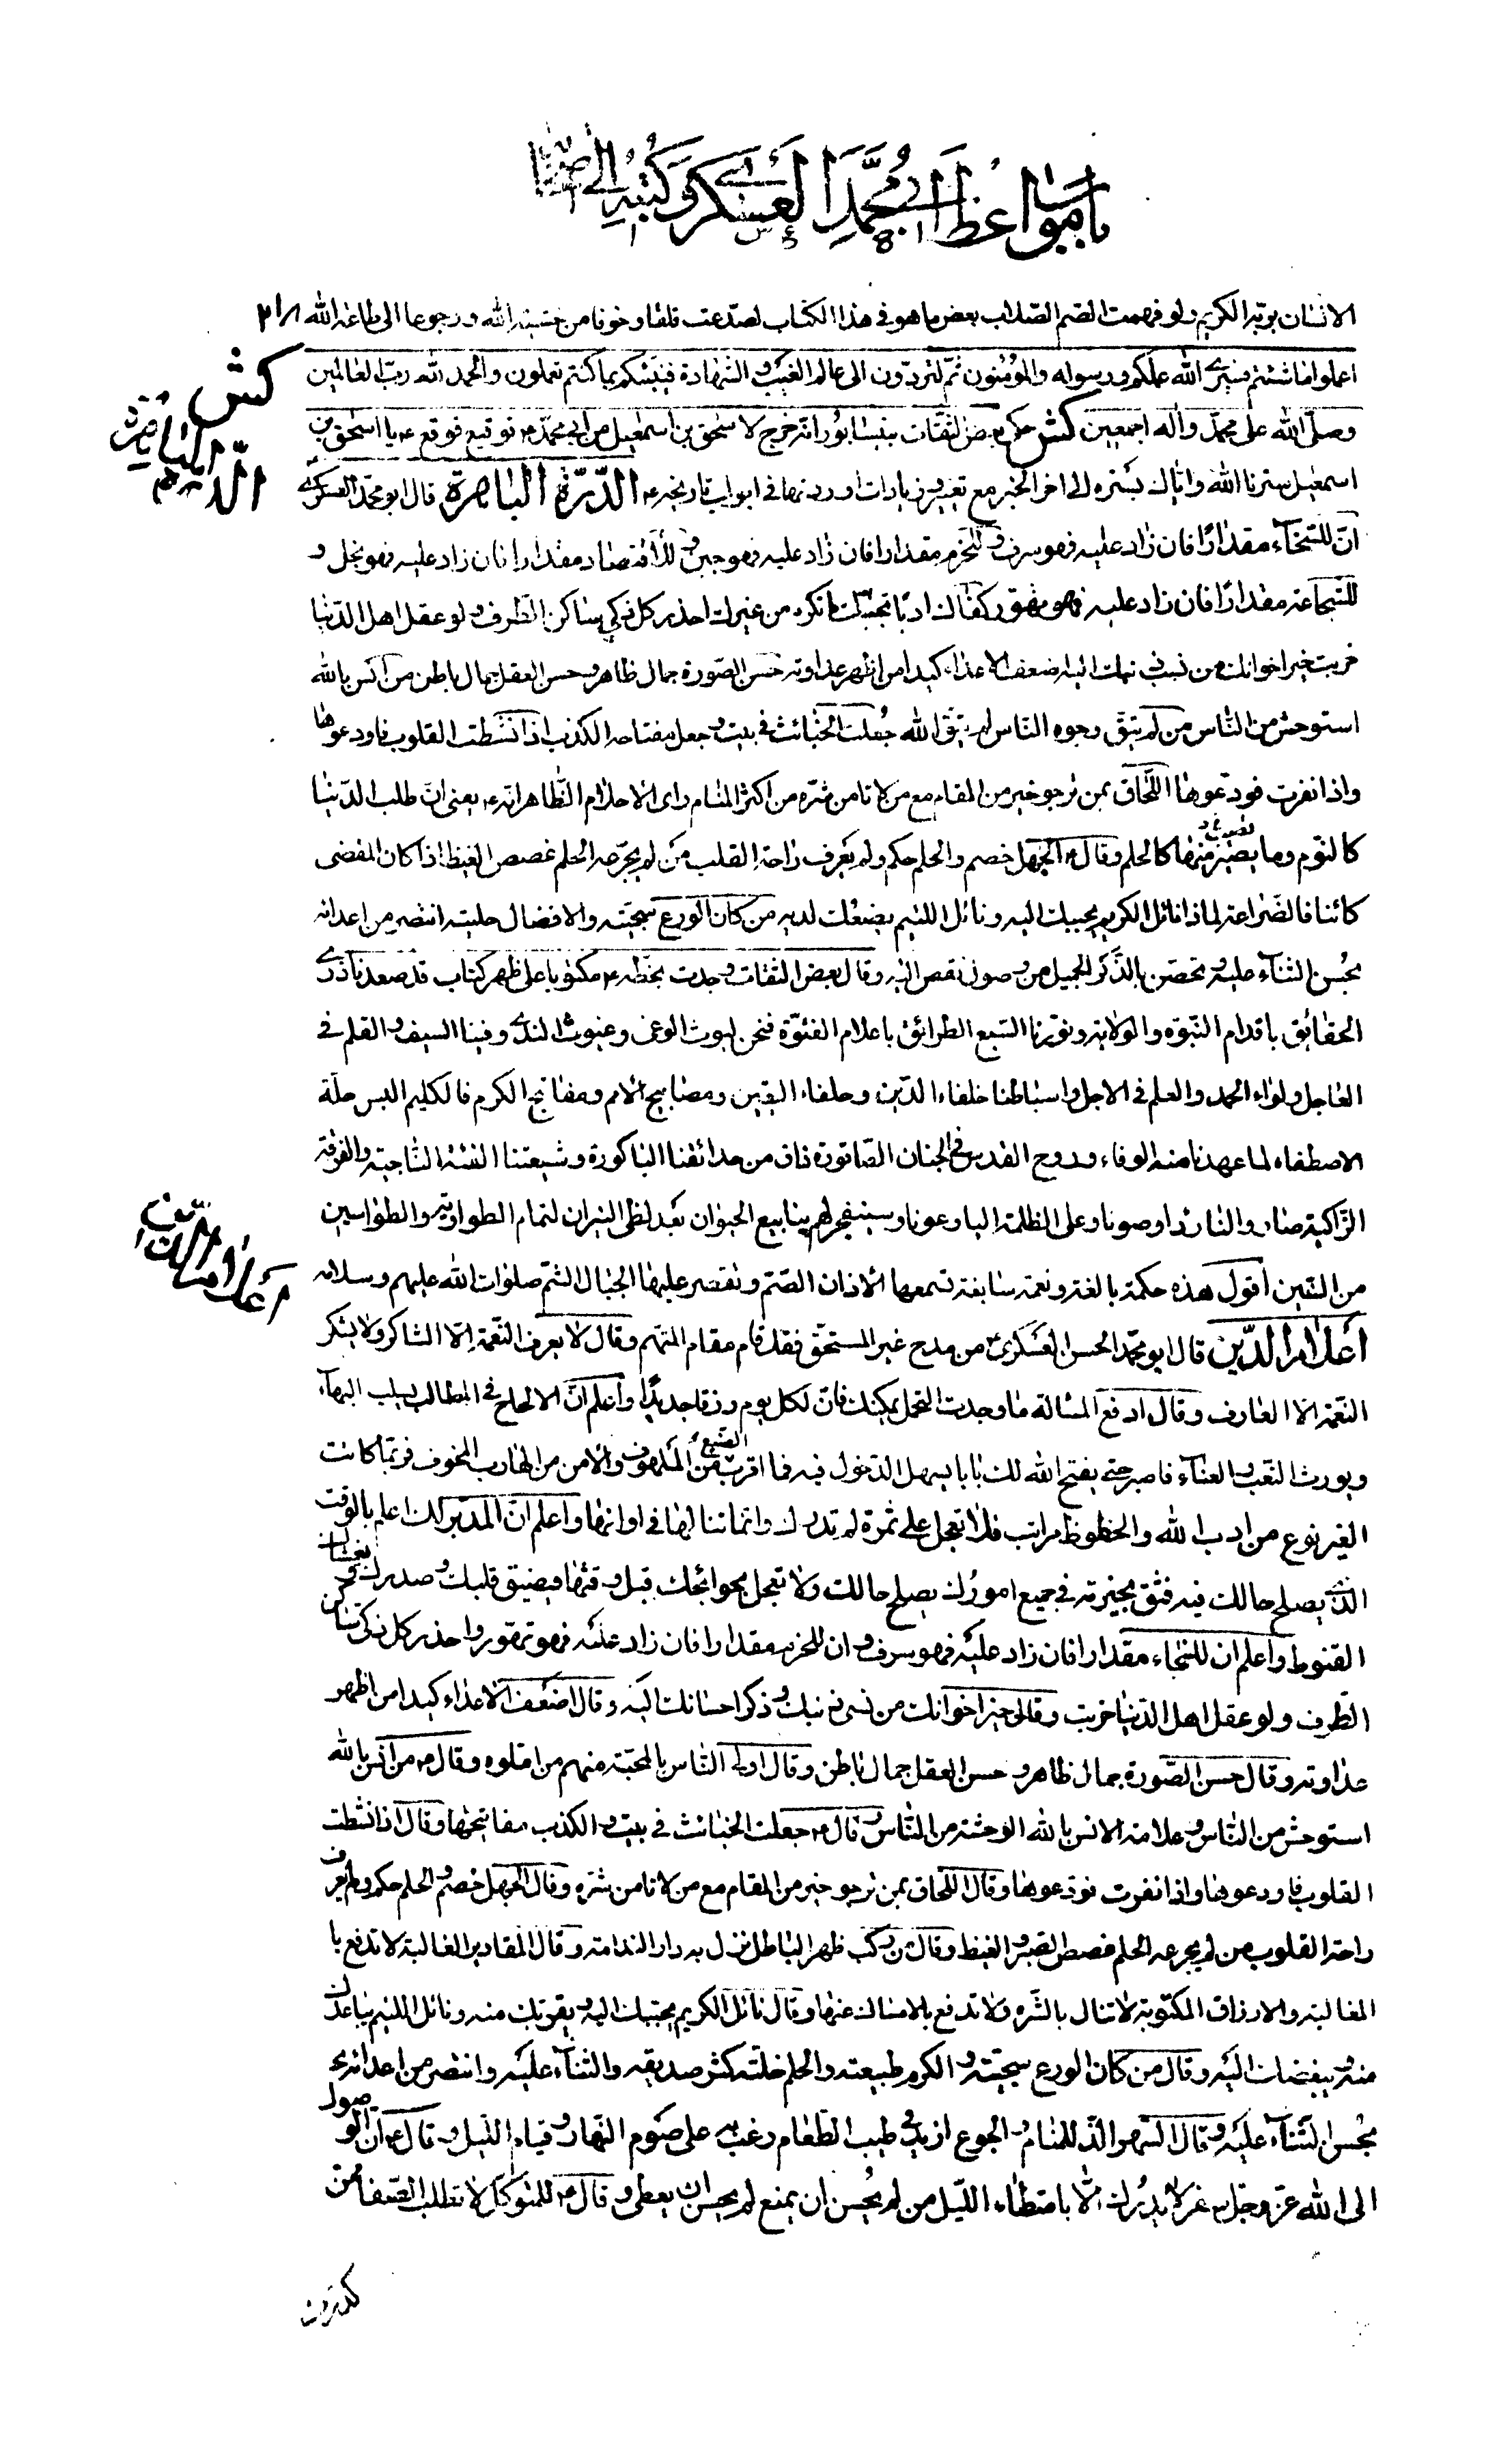 باب مواعظ ابي محمد العسكري وكتبه الى اصحابه
الانسان بربه الكريم ولو فهمت الصم الصلاب بعض ما هو في هذا الكتاب لصدعت قلقا وخوفا من خشية الله ورجوعا الى طاعة الله ٢١٨
اعملوا ما شئتم فسيرى الله عملكم ورسوله والمؤمنون ثم لتردون الى عالم الغيب والشهادة فينبئكم بما كنتم تعملون والحمد لله رب العالمين
كش
وصلى الله على محمد واله اجمعين كش حكى بعض الثقات بنيسابور انه خرج لاسحق بن اسمعيل من ابي محمد ع توقيع فوقع ع يا اسحق بن
الدرة الباهرة
اسمعيل سترنا الله واياك بستره الى اخر الخبر مع تغيير وزيادات اوردتها في ابواب تاريخه ع الدرة الباهرة قال ابو محمد العسكري
ان للسخآء مقدارا فان زاد عليه فهو سرف وللحزم مقدارا فان زاد عليه فهو جبن وللاقتصاد مقدارا فان زاد عليه فهو بخل و
للشجاعة مقدارا فان زاد عليه فهو تهور كفاك ادبا تجنبك ما تكره من غيرك احذر كل ذكي ساكن الطرف ولو عقل اهل الدنيا
خربت خير اخوانك من نسب ذنبك اليه اضعف الاعداء كيدا من اظهر عداوته حسن الصورة جمال ظاهر وحسن العقل جمال باطن من انس بالله
استوحش من الناس من لم يتق وجوه الناس لم يتق الله جعلت الخبائث في بيت وجعل مفتاحه الكذب اذا نشطت القلوب فاودعوها
واذا نفرت فودعوها اللحاق بمن ترجو خير من المقام مع من لا تامن شره من اكثر المنام راى الاحلام الظاهر انه ع يعني ان طلب الدنيا
كالنوم وما يصير منها كالحلم وقال ع الجهل خصم والحلم حكم ولم يعرف راحة القلب من لم يجرعه الحلم غصص الغيظ اذا كان المقضي
كائنا فالضراعة لماذا نائل الكريم يحببك اليه ونائل اللئيم يضعك لديه من كان الورع سجيته والافضال حليته انتصر من اعدائه
بحسن الثنآء عليه وتحصن بالذكر الجميل من وصول نقص اليه وقال بعض الثقات وجدت بخطه ع مكتوبا على ظهر كتاب قد صعدنا ذرى
الحقائق باقدام النبوة والولاية ونورنا السبع الطرائق باعلام الفتوة فنحن ليوث الوغى وغيوث الندى وفينا السيف والقلم في
العاجل ولواء الحمد والعلم في الاجل واسباطنا خلفاء الدين وحلفاء اليقين ومصابيح الامم ومفاتيح الكرم فالكليم البس حلة
الاصطفاء لما عهدنا منه الوفاء وروح القدس في الجنان الصاقورة ذاق من حدائقنا الباكورة وشيعتنا الفئة الناجية والفرقة
الزاكية صاروا لنا ردا وصونا وعلى الظلمة البا وعونا وسينفجر لهم ينابيع الحيوان بعد لظى النيران لتمام الطواوية والطواسين
اعلام الدين
من السنين اقول هذه حكمة بالغة ونعمة سابغة تسمعها الاذان الصم وتقصر عليها الجبال الشم صلوات الله عليهم وسلامه
اعلام الدين قال ابو محمد الحسن العسكري ع من مدح غير المستحق فقد قام مقام المتهم وقال لا يعرف النعمة الا الشاكر ولا يشكر
النعمة الا العارف وقال ادفع المسالة ما وجدت التحمل يمكنك فان لكل يوم رزقا جديدا واعلم ان الالحاح في المطالب يسلب البهآء
ويورث التعب والعنآء فاصبر حتى يفتح الله لك بابا يسهل الدخول فيه فما اقرب الصنيع من الملهوف والامن من الهارب المخوف فربما كانت
الغير نوع من ادب الله والحظوظ مراتب فلا تعجل على ثمرة لم تدرك وانما تنالها في اوانها واعلم ان المدبر لك اعلم بالوقت
الذي يصلح حالك فيه فثق بخيرته في جميع امورك يصلح حالك ولا تعجل بحوائجك قبل وقتها فيضيق قلبك وصدرك ويغشاك
القنوط واعلم ان للسخاء مقدارا فان زاد عليه فهو سرف وان للحزم مقدارا فان زاد عليه فهو تهور واحذر كل ذكي ساكن
الطرف ولو عقل اهل الدنيا خربت وقال خير اخوانك من نسى ذنبك وذكر احسانك اليه وقال اضعف الاعداء كيدا من اظهر
عداوته وقال حسن الصورة جمال ظاهر وحسن العقل جمال باطن وقال اولى الناس بالمحبة منهم من املوه وقال ع من انس بالله
استوحش من الناس وعلامة الانس بالله الوحشة من الناس وقال ع جعلت الخبائث في بيت والكذب مفاتيحها وقال اذا نشطت
القلوب فاودعوها واذا نفرت فودعوها وقال اللحاق بمن ترجو خير من المقام مع من لا تامن شره وقال الجهل خصم والحلم حكم ولم يعرف
راحة القلوب من لم يجرعه الحلم غصص الصبر والغيظ وقال من ركب ظهر الباطل نزل به دار الندامة وقال المقادير الغالبة لا تدفع با
المغالبة والارزاق المكتوبة لا تنال بالشره ولا تدفع بالامساك عنها وقال نائل الكريم يحببك اليه ويقربك منه ونائل اللئيم يباعدك
منه ويبغضك اليه وقال من كان الورع سجيته والكرم طبيعته والحلم خلته كثر صديقه والثنآء عليه وانتصر من اعدائه
بحسن الثنآء عليه وقال السهر الذ للمنام والجوع ازيد في طيب الطعام رغب به على صوم النهار وقيام الليل وقال ع ان الوصول
الى الله عز وجل سفر لا يدرك الا بامتطاء الليل من لم يحسن ان يمنع لم يحسن ان يعطى وقال ع للمتوكل لا تطلب الصفا ممن
كدرت